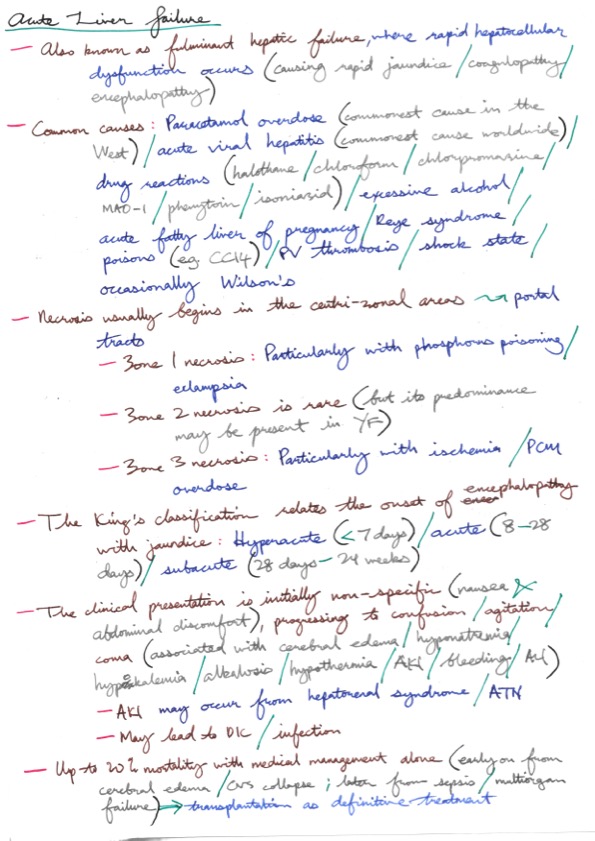 Acute Liver failure
– Also known as fulminant hepatic failure, where rapid hepatocellular
dysfunction occurs (causing rapid jaundice / coagulopathy /
encephalopathy)
– Common causes: Paracetamol overdose (commonest cause in the
West) / acute viral hepatitis (commonest cause worldwide) /
drug reactions (halothane / chloroform / chlorpromazine /
MAO-I / phenytoin / isoniazid) / excessive alcohol /
acute fatty liver of pregnancy / Reye syndrome /
poisons (eg. CCl4) / PV thrombosis / shock state /
occasionally Wilson's
– Necrosis usually begins in the centri-zonal areas → portal
tracts
– Zone 1 necrosis: Particularly with phosphorus poisoning /
eclampsia
– Zone 2 necrosis is rare (but its predominance
may be present in YF)
– Zone 3 necrosis: Particularly with ischemia / PCM
overdose
– The King's classification relates the onset of encephalopathy
with jaundice: Hyperacute (< 7 days) / acute (8–28
days) / subacute (28 days – 24 weeks)
– The clinical presentation is initially non-specific (nausea &
abdominal discomfort), progressing to confusion / agitation /
coma (associated with cerebral edema / hyponatremia /
hypokalemia / alkalosis / hypothermia / AKI / bleeding /
– AKI may occur from hepatorenal syndrome / ATN
– May lead to DIC / infection
– Up to 20% mortality with medical management alone (early on from
cerebral edema / CVS collapse; later from sepsis / multiorgan
failure) → transplantation as definitive treatment